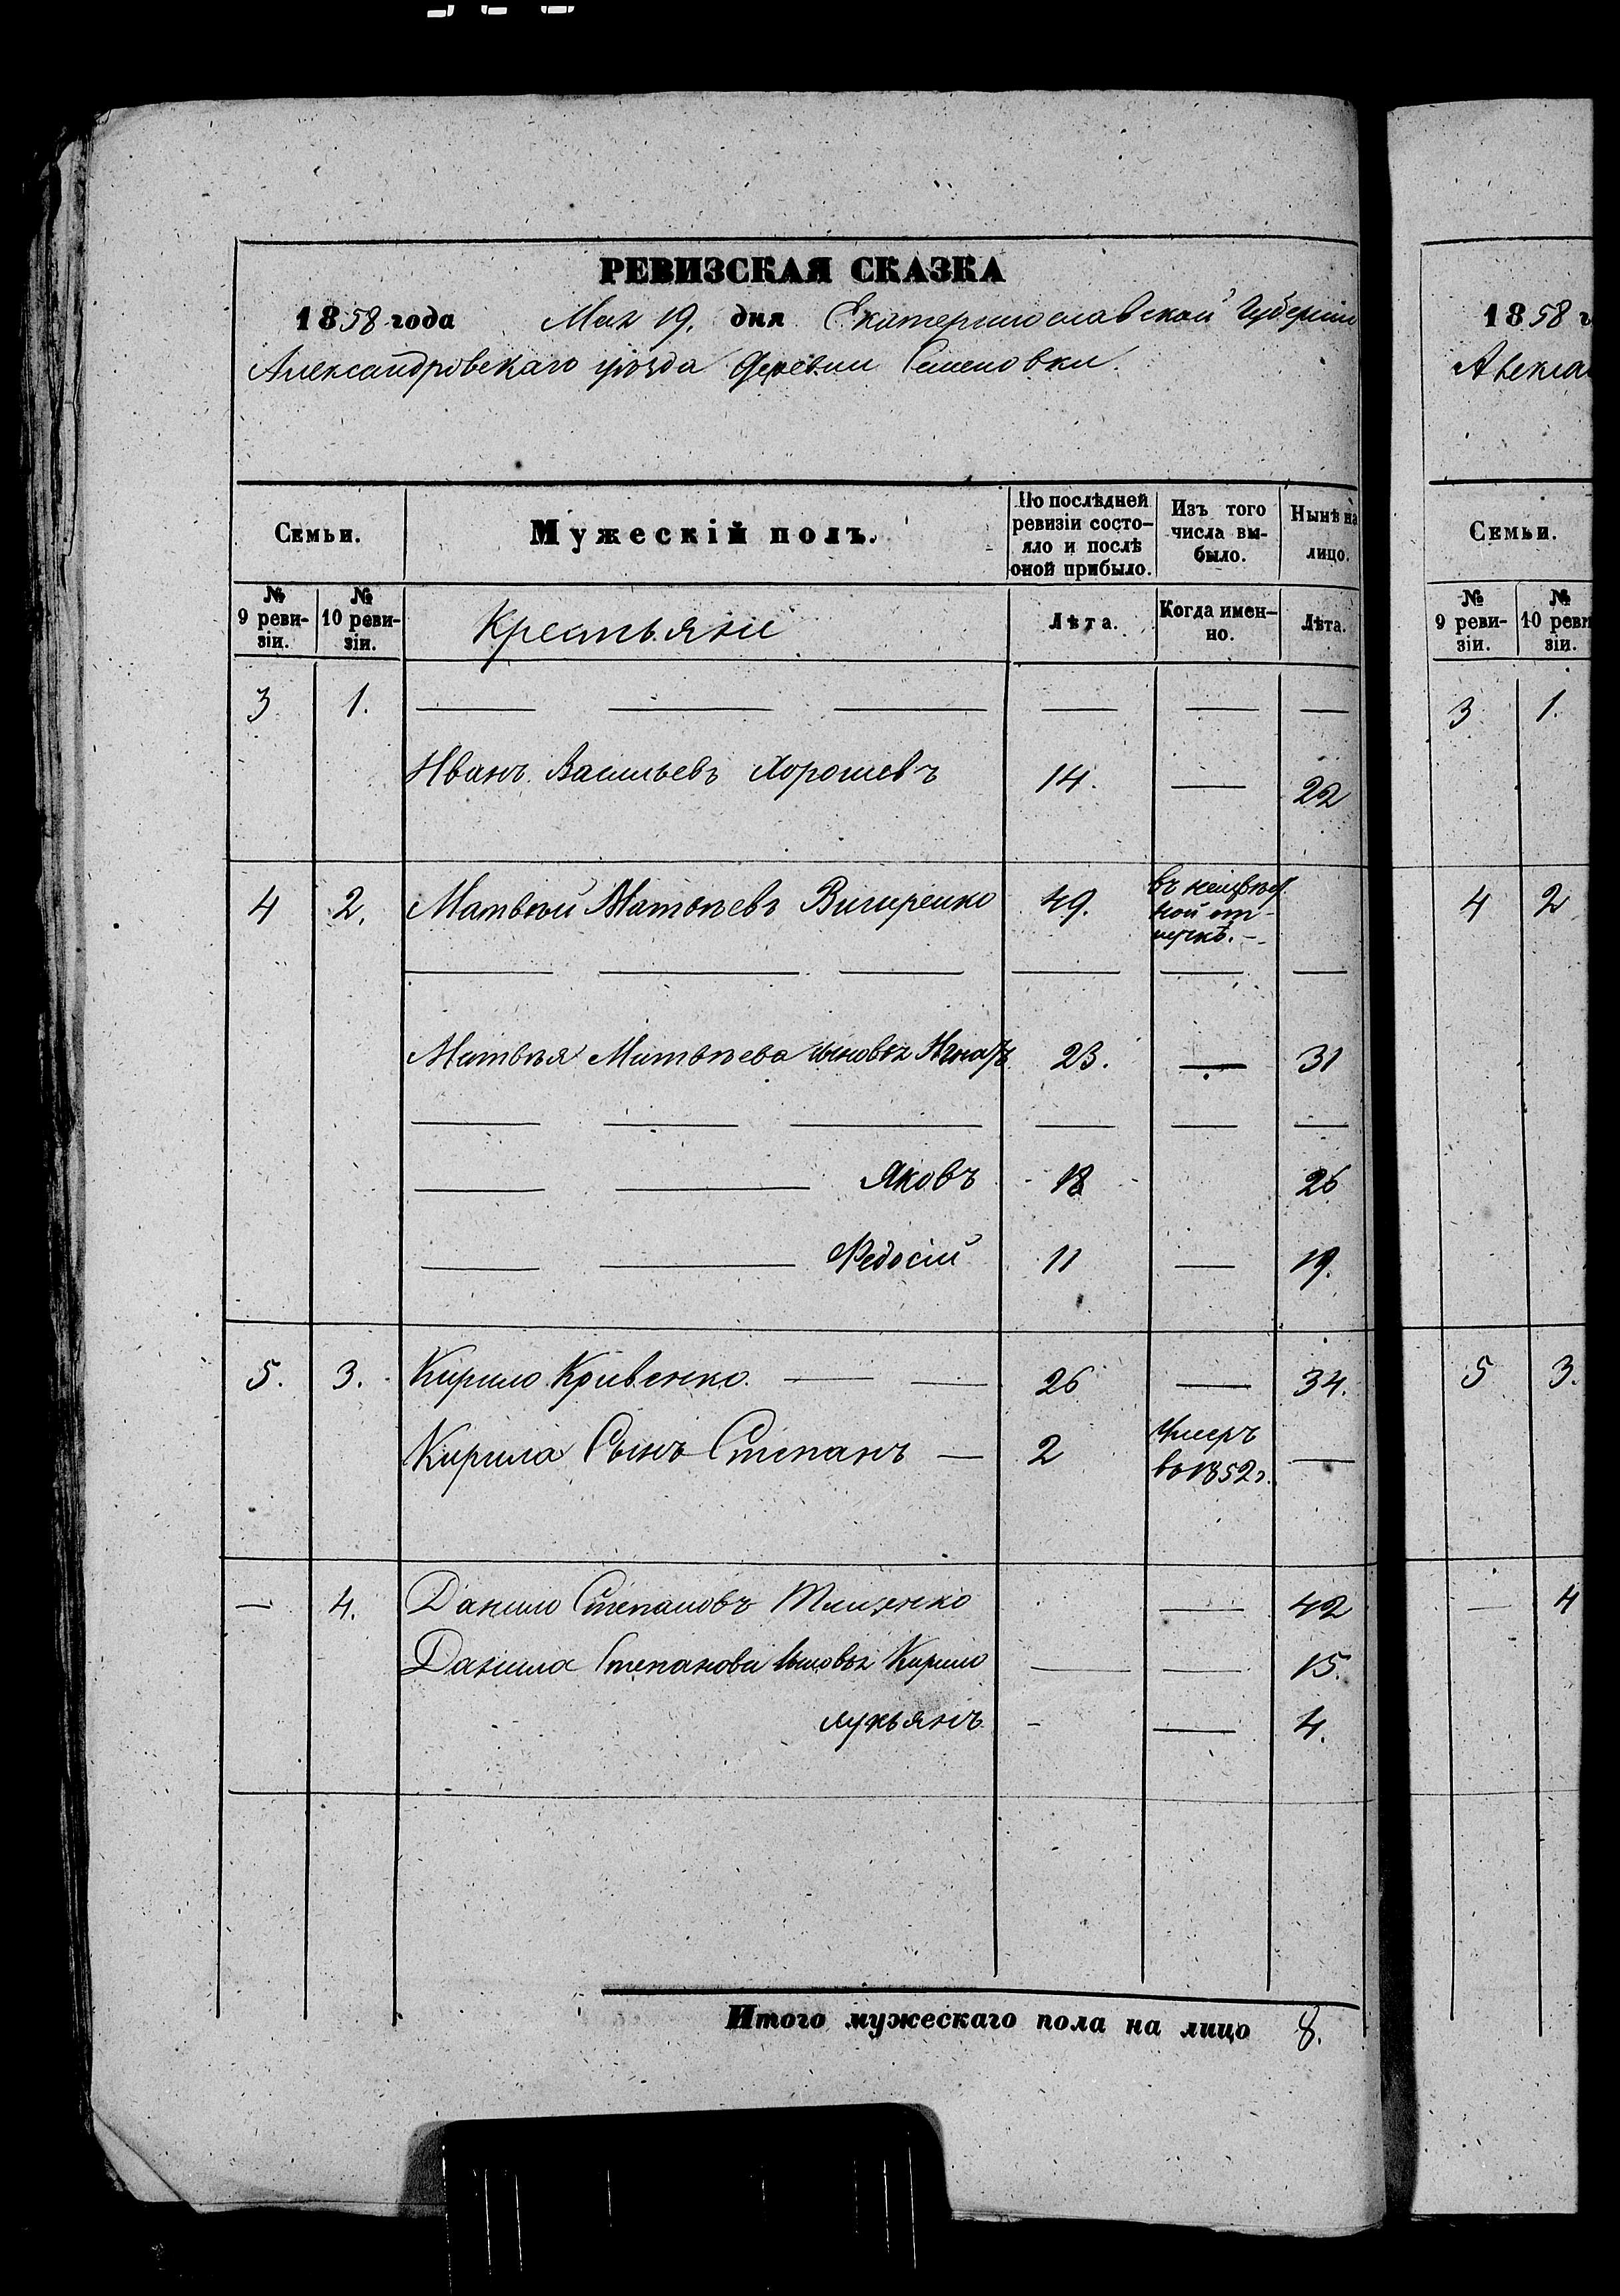 РЕВИЗСКАЯ СКАЗКА
1858 года Мая 19. дня Екатеринославской Губерніи
Александровскаго уѣзда деревни Семеновки.
Семьи.
Мужескій полъ.
По послѣдней ревизіи состо-
яло и послѣ
оной прибыло.
Изъ того
числа вы-
было.
Нынѣ на
лицо.
№
9 реви-
зіи.
№
10 реви-
зіи.
Крестьяне
Лѣта.
Когда имен-
но.
Лѣта.
3 1.
Иванъ Васильевъ Хорошевъ 14. — 22
4 2. Матвѣй Матвѣевъ 49.
въ неизвѣст
ной от-
лучкѣ.
Матвѣя Матвѣева сыновья Игнатъ 23. — 31
Яковъ 18 26
Федосій 11 — 19.
5. 3. Кирило Кривенко. 26 — 34.
Кирила Сынъ Степанъ — 2 Умеръ
въ 1852г. —
— 4. Данило Степановъ — 42
Данила Степанова сыновья Кирило — — 15.
Лукьянъ - — 4.
Итого мужескаго пола на лицо 8.
1858 г
Алекса
Семьи.
№
9 реви-
зіи.
№
10 реви
зіи.
3 1.
4 2
5 3.
— 4